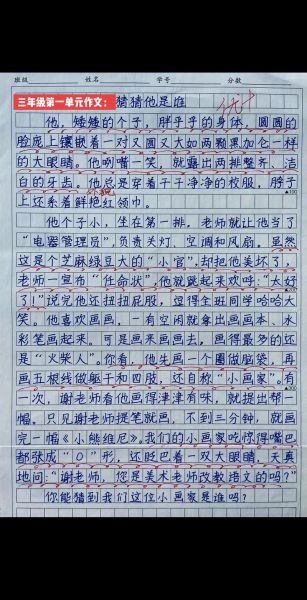 班级 姓名 学号 分数
三年级第一单元作文：猜猜他是谁 优+
他，矮矮的个子，胖乎乎的身体，圆圆的
脸庞上镶嵌着一对又圆又大如两颗黑加仑一样
的大眼睛。他咧嘴一笑，就露出两排整齐、洁
白的牙齿。他总是穿着干干净净的校服，脖子
上还系着鲜艳红领巾。
他个子小，坐在第一排，老师就让他当了
“电器管理员”，负责关灯、空调和风扇。虽然
这是个芝麻绿豆大的“小官”，却把他美坏了，
老师一宣布“任命状”，他就跳起来欢呼：“太好
了！”说完他还扭扭屁股，逗得全班同学哈哈大
笑。他喜欢画画，一有空闲就拿出画画本、水
彩笔画起来。可是画来画画去，画得最多的还
是“火柴人”。你看，他先画一个圈做脑袋，再
画五根线做躯干和四肢，还自称“小画家”。有
一次，谢老师看他画得津津有味，就提出帮一
幅。只见谢老师提笔就画，不到三分钟，就画
完一幅《小熊维尼》，我们的小画家吃惊得嘴巴
都张成“O”形，还眨巴着一双大眼睛，天真
地问：“谢老师，您是美术老师改教语文的吗？”
你能猜到我们这位小画家是谁吗？